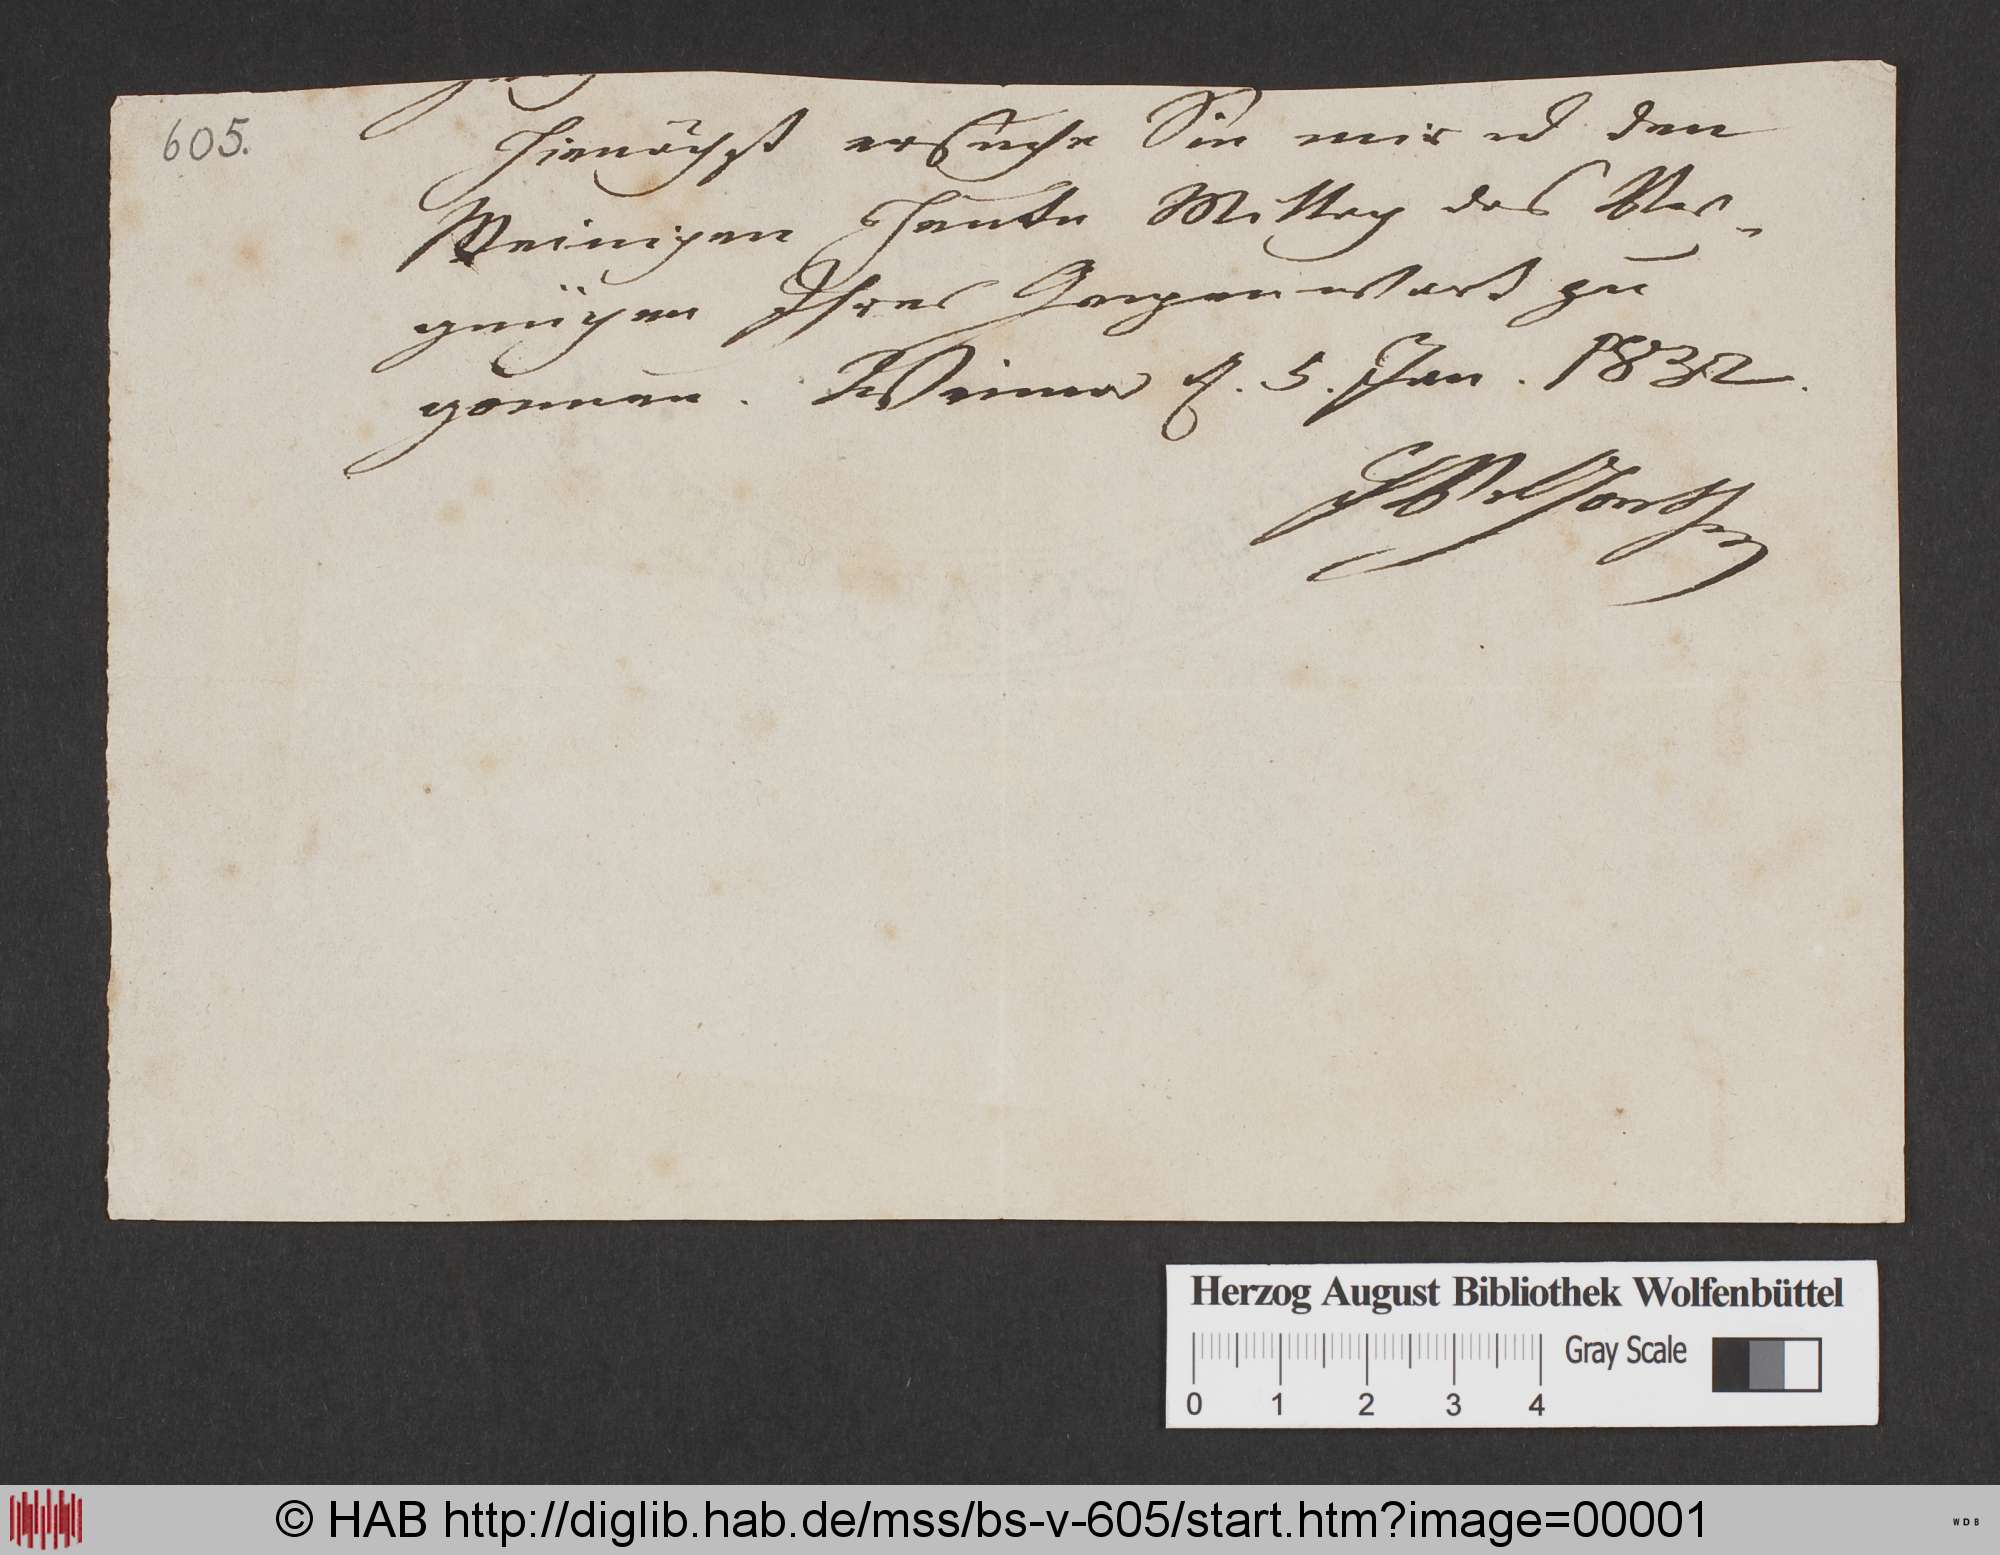 605.
Hienächst ersuche Sie mir u den
Meinigen Heute Mittag das Ver-
gnügen Ihrer Gegenwart zu
gönnen. Weimar d. 5. Jan. 1832.
JWvGoethe
Herzog August Bibliothek Wolfenbüttel
Gray Scale
0 1 2 3 4
© HAB http://diglib.hab.de/mss/bs-v-605/start.htm?image=00001
WDB